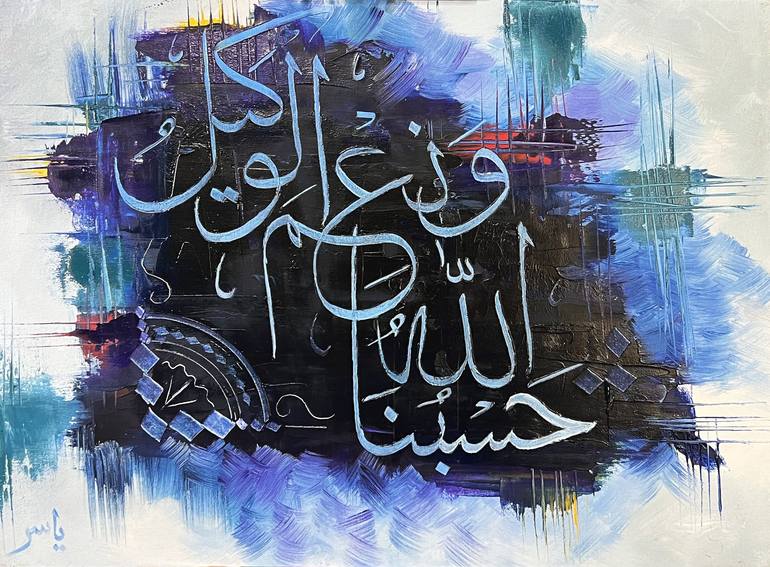 حَسْبُنَا
اللّٰهُ
وَنِعْمَ الْوَكِيلُ
ياسر